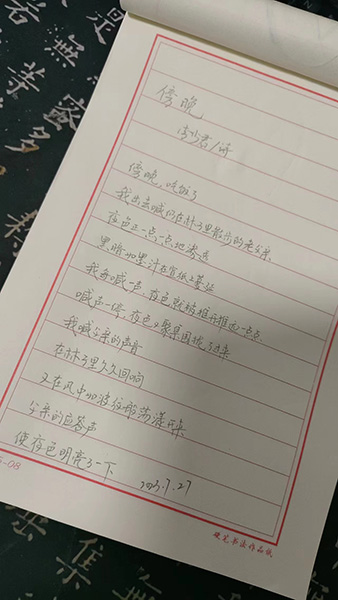 傍晚
李少君/诗
傍晚,吃饭了
我出去喊仍在林子里散步的老父亲
夜色正一点一点地渗透
黑暗如墨汁在宣纸上蔓延
我每喊一声,夜色就被推开推远一点点
喊声一停,夜色又聚集围拢了过来
我喊父亲的声音
在林子里久久回响
又在风中如波纹般荡漾开来
父亲的应答声
使夜色明亮了一下
2023.7.27
-08
硬笔书法作品纸